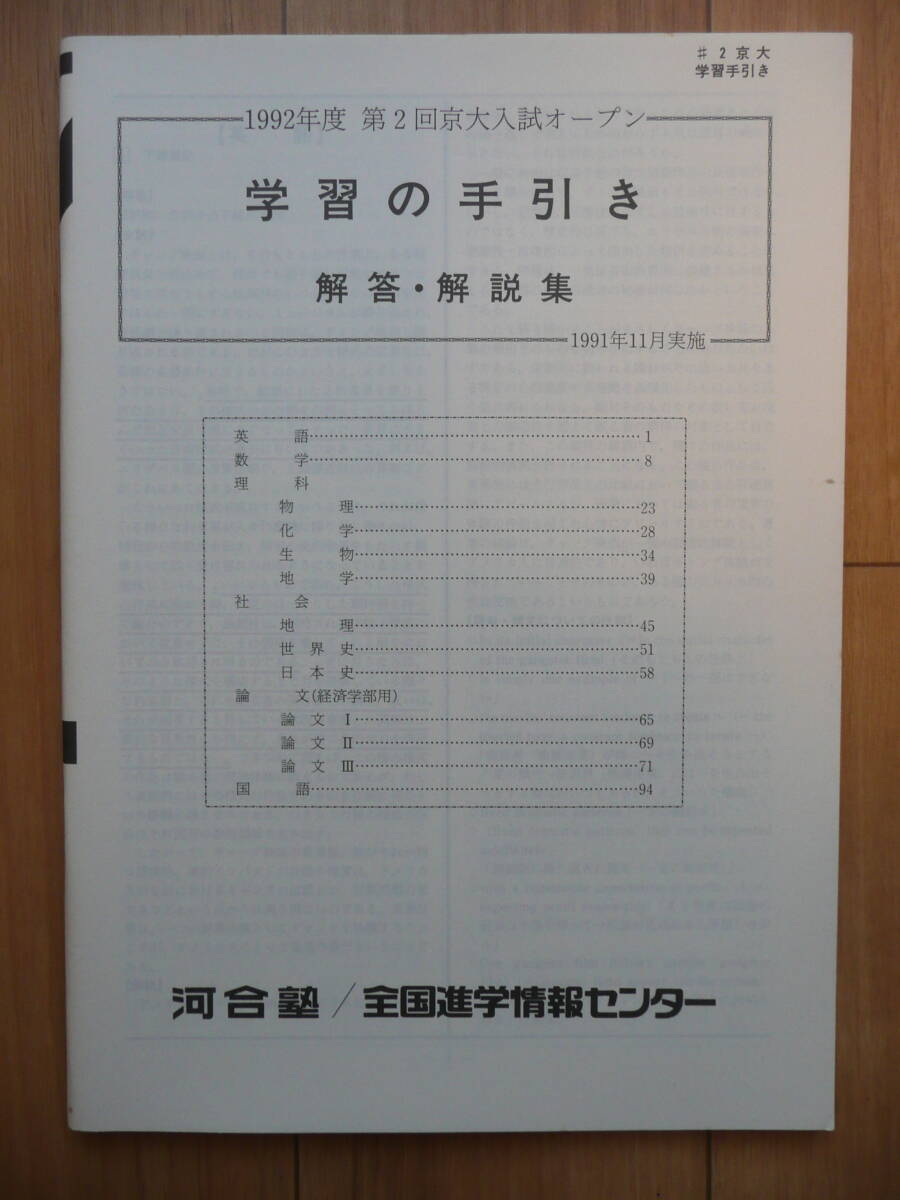 ♯2京大
学習手引き
1992年度 第2回京大入試オープン
学習の手引き
解答・解説集
1991年11月実施
英語……1
数学……8
理科
物理……23
化学……28
生物……34
地学……39
社会
地理……45
世界史……51
日本史……58
論文(経済学部用)
論文Ⅰ……65
論文Ⅱ……69
論文Ⅲ……71
国語……94
河合塾/全国進学情報センター